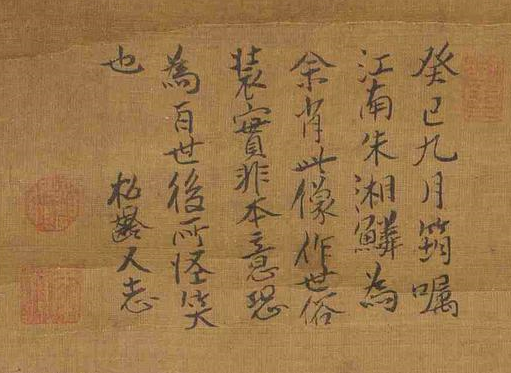 癸巳九月筠嘱
江南朱湘鱗為
余肖此像作世俗
裝實非本意恐
為百世後所怪笑
也 松齡又志